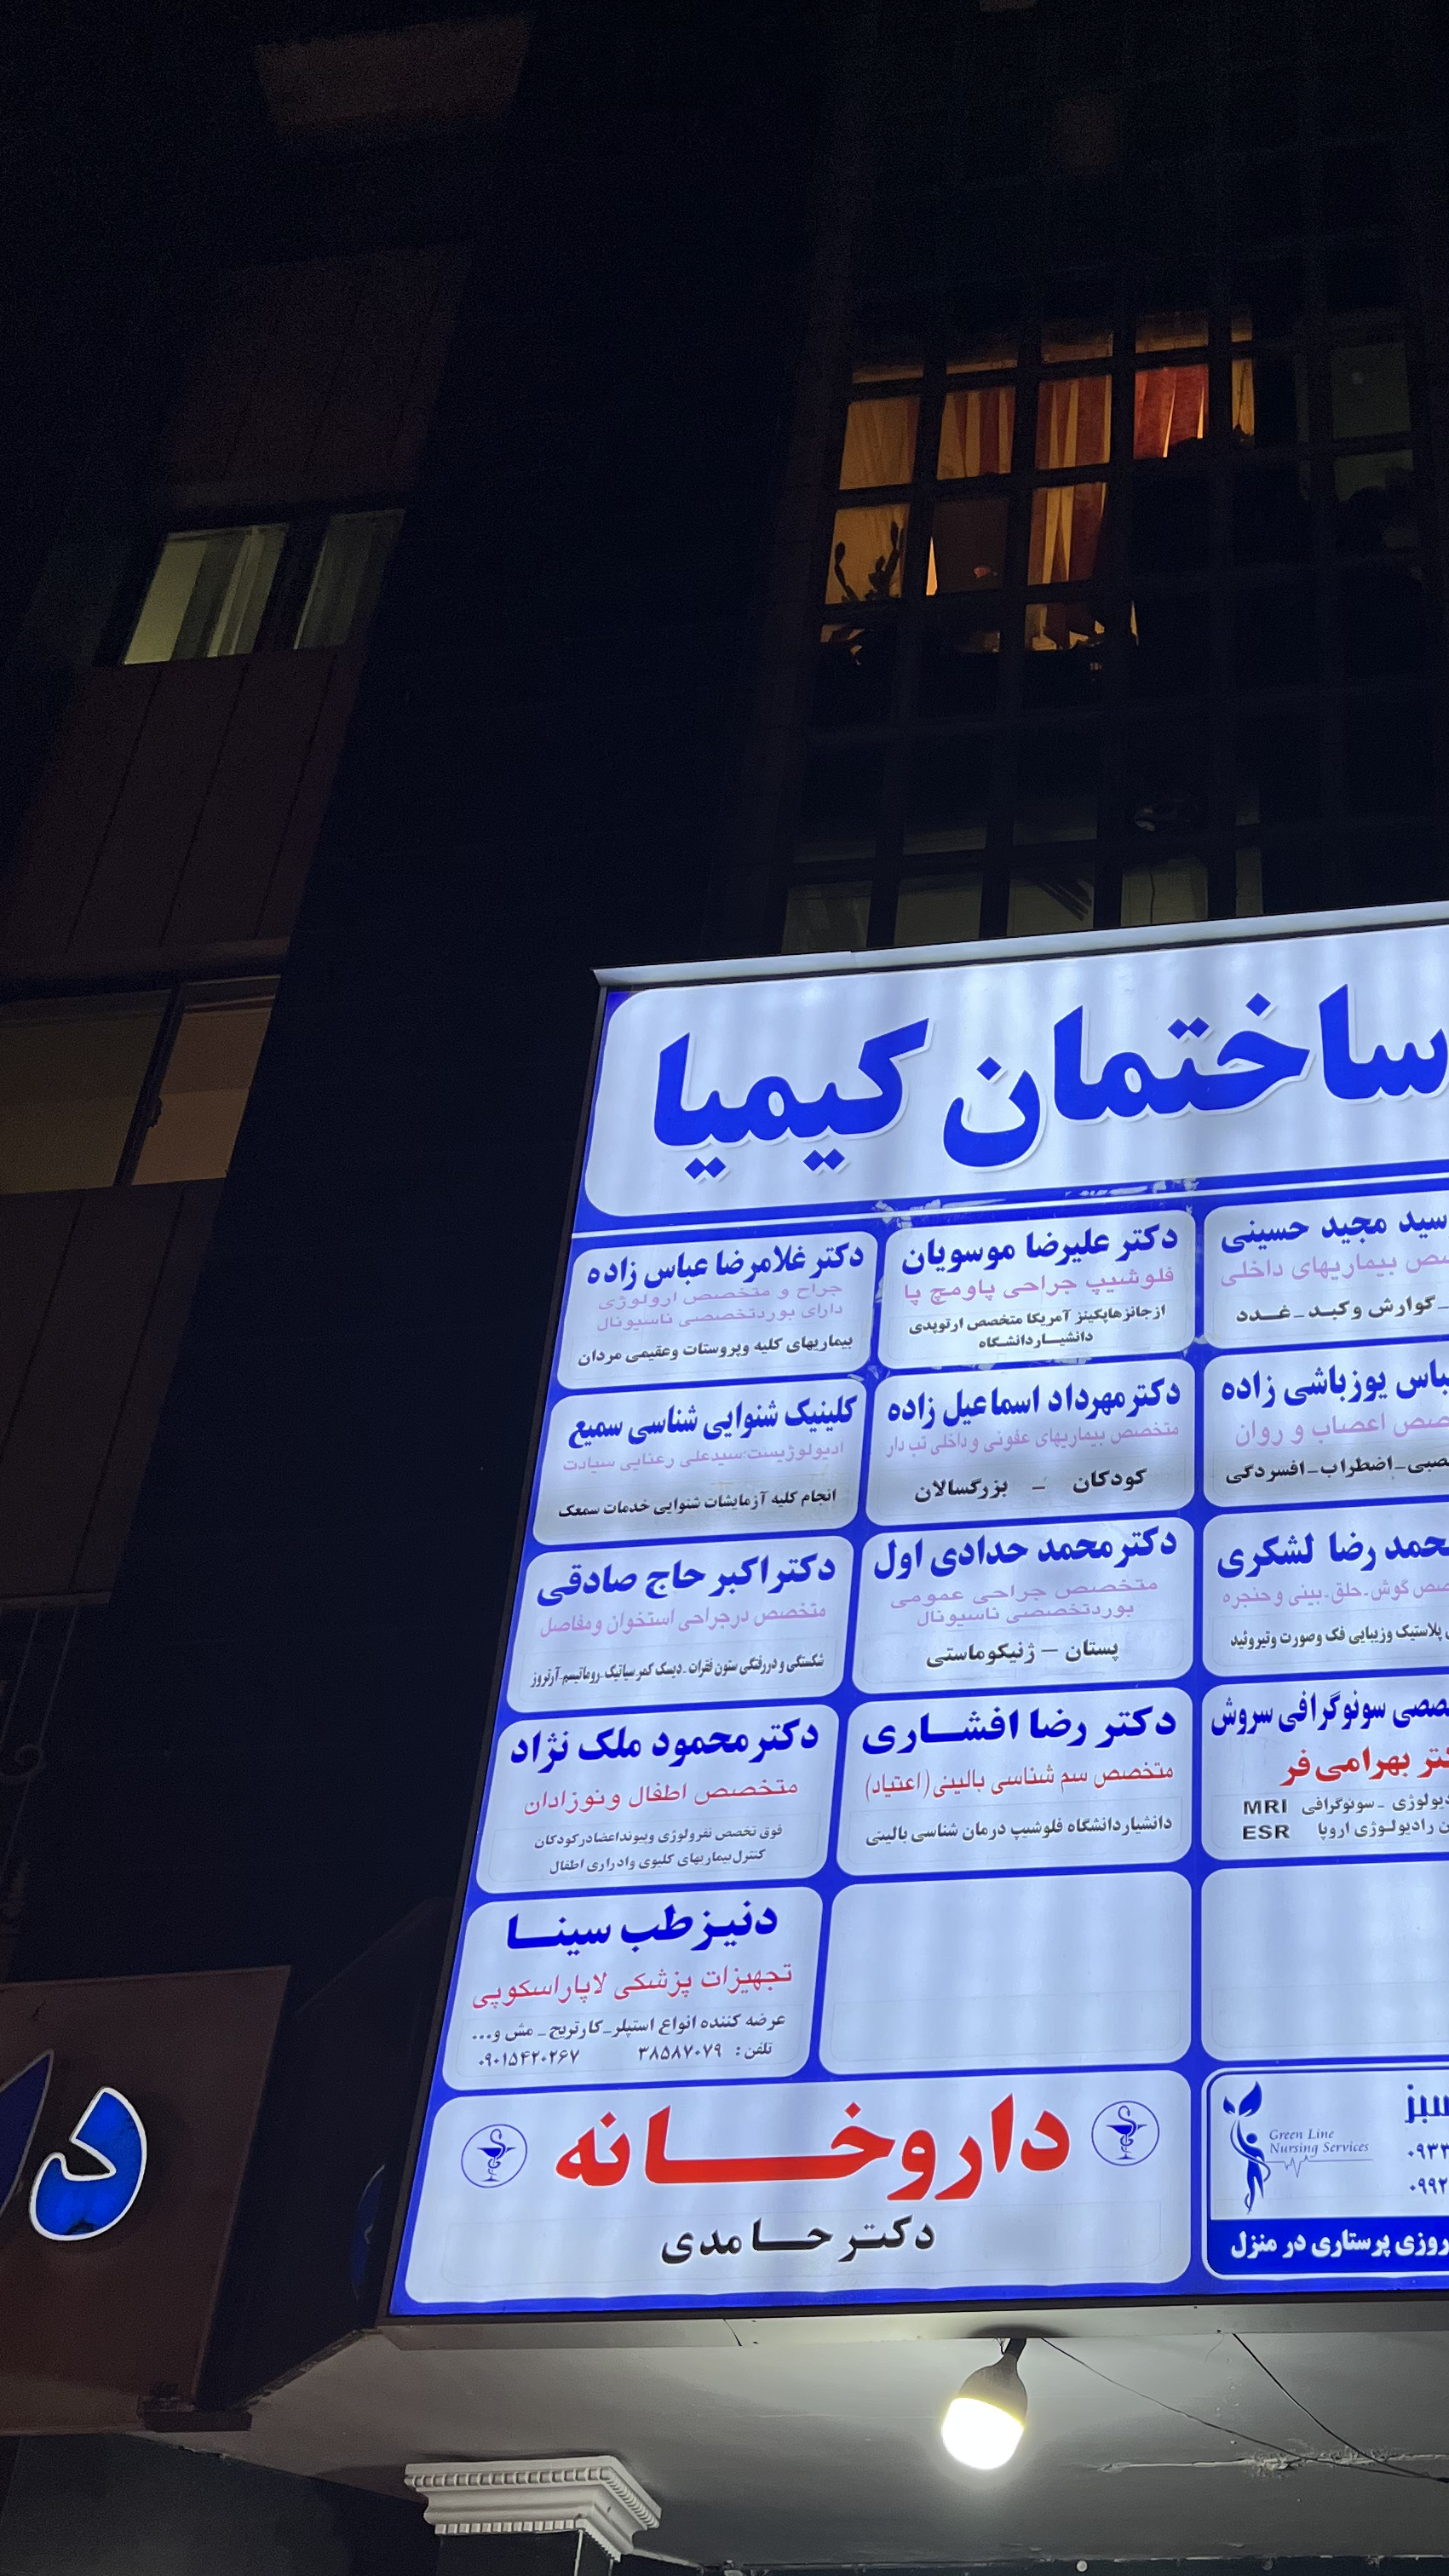 ساختمان کیمیا
سید مجید حسینی
بیماریهای داخلی
گوارش و کبد - غدد
دکتر علیرضا موسویان
فلوشیپ جراحی پا و مچ پا
از جانز هاپکینز آمریکا متخصص ارتوپدی
دانشیار دانشگاه
دکتر غلامرضا عباس زاده
جراح و متخصص ارولوژی
دارای بورد تخصصی ناسیونال
بیماریهای کلیه و پروستات و عقیمی مردان
یوزباشی زاده
اعصاب و روان
اضطراب - افسردگی
دکتر مهرداد اسماعیل زاده
متخصص بیماریهای عفونی و داخلی تب دار
کودکان - بزرگسالان
کلینیک شنوایی شناسی سمیع
ادیولوژیست: سیدعلی رعنایی سیادت
انجام کلیه آزمایشات شنوایی خدمات سمعک
رضا لشکری
گوش - حلق - بینی و حنجره
پلاستیک وزیبایی فک وصورت وتیروئید
دکتر محمد حدادی اول
متخصص جراحی عمومی
بورد تخصصی ناسیونال
پستان – ژنیکوماستی
دکتر اکبر حاج صادقی
متخصص در جراحی استخوان و مفاصل
شکستگی و دررفتگی ستون فقرات - دیسک کمر سیاتیک - روماتیسم - آرتروز
سونوگرافی سروش
بهرامی فر
سونوگرافی MRI
رادیولوژی اروپا ESR
دکتر رضا افشاری
متخصص سم شناسی بالینی (اعتیاد)
دانشیار دانشگاه فلوشیپ درمان شناسی بالینی
دکتر محمود ملک نژاد
متخصص اطفال و نوزادان
فوق تخصص نفرولوژی و پیوند اعضا در کودکان
کنترل بیماریهای کلیوی و ادراری اطفال
دنیز طب سینا
تجهیزات پزشکی لاپاراسکوپی
عرضه کننده انواع استپلر - کارتریج - مش و...
تلفن: ۳۸۵۸۷۰۷۹ ۰۹۰۱۵۴۲۰۲۶۷
سبز
Green Line
Nursing Services
۰۹۳۳
۰۹۹۲
پرستاری در منزل
داروخانه
دکتر حامدی
د